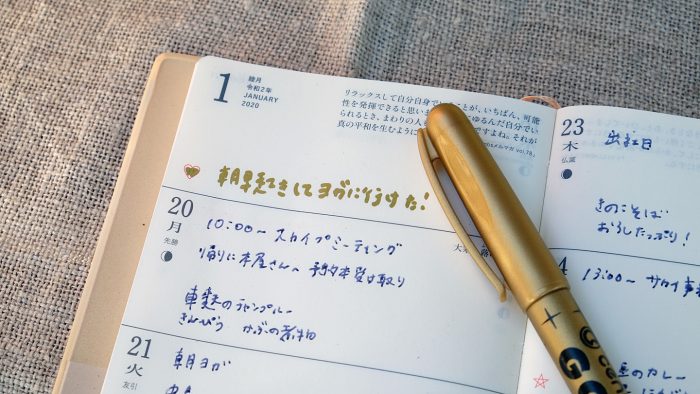 1
睦月
令和2年
JANUARY
2020
リラックスして自分自身で
ことが、いちばん、可能
性を発揮できると思いま
にゆるんだ自分でい
られるとき、まわりの人も
ですよね。それが
真の平和を生むように
メルマガ vol.78」
朝早起きしてヨガに行けた!
20
月
先勝
10:00〜 スカイプミーティング
帰りに本屋さんへ 予約本受け取り
車麩のチャンプルー
きんぴら かぶの煮物
21
火
友引
朝ヨガ
23
木
仏滅
出社日
きのこそば
おろしたっぷり!
4
13:00〜 サカイ
のカレー